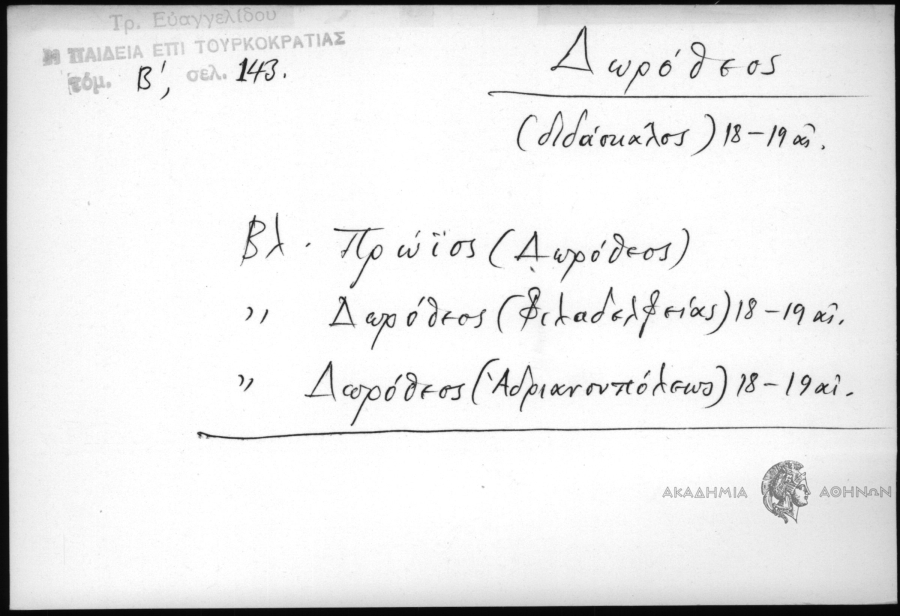 Τρ. Εὐαγγελίδου
Η ΠΑΙΔΕΙΑ ΕΠΙ ΤΟΥΡΚΟΚΡΑΤΙΑΣ
τόμ. Β', σελ. 143.
Δωρόθεος
(διδάσκαλος) 18-19 αἰ.
Βλ. Πρώϊος (Δωρόθεος)
,, Δωρόθεος (Φιλαδελφείας) 18-19 αἰ.
,, Δωρόθεος (Ἀδριανουπόλεως) 18-19 αἰ.
ΑΚΑΔΗΜΙΑ ΑΘΗΝΩΝ